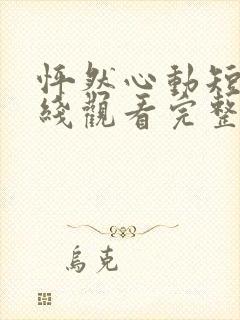 怦然心動短
綫觀看完整
烏克